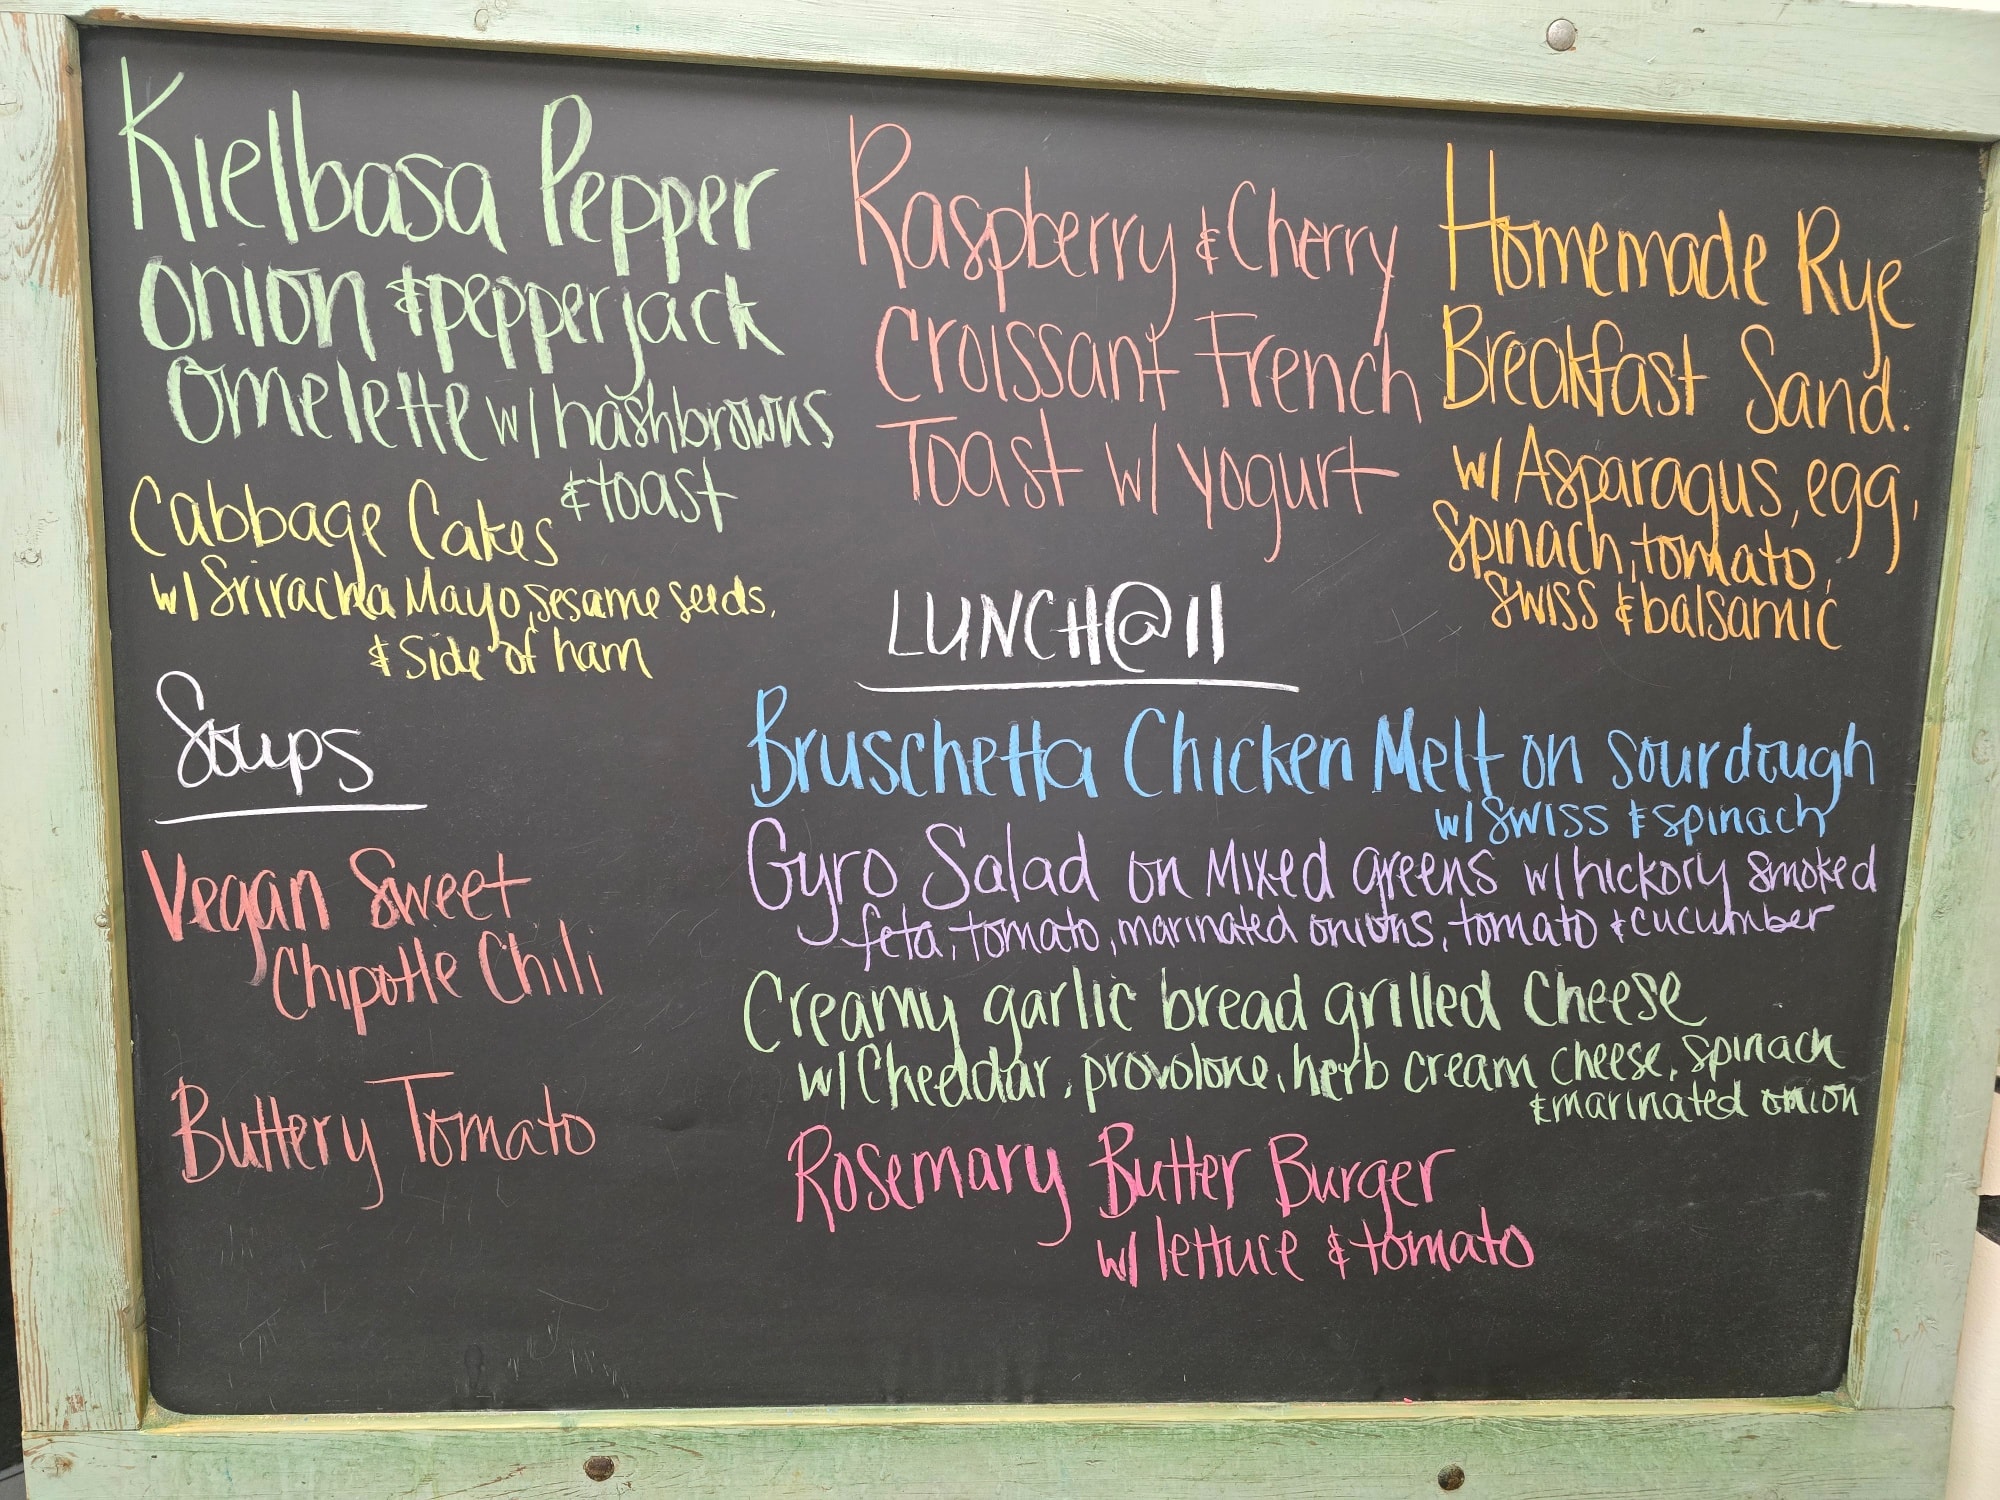 Kielbasa Pepper
Onion & pepperjack
Omelette w/ hashbrowns
& toast
Cabbage Cakes
w/ Sriracha Mayo, sesame seeds,
& side of ham
Raspberry & Cherry
Croissant French
Toast w/ yogurt
Homemade Rye
Breakfast Sand.
w/ Asparagus, egg,
spinach, tomato,
swiss & balsamic
Soups
Vegan Sweet
Chipotle Chili
Buttery Tomato
LUNCH@11
Bruschetta Chicken Melt on sourdough
w/ swiss & spinach
Gyro Salad on mixed greens w/ hickory smoked
feta, tomato, marinated onions, tomato & cucumber
Creamy garlic bread grilled cheese
w/ Cheddar, provolone, herb cream cheese, spinach
& marinated onion
Rosemary Butter Burger
w/ lettuce & tomato